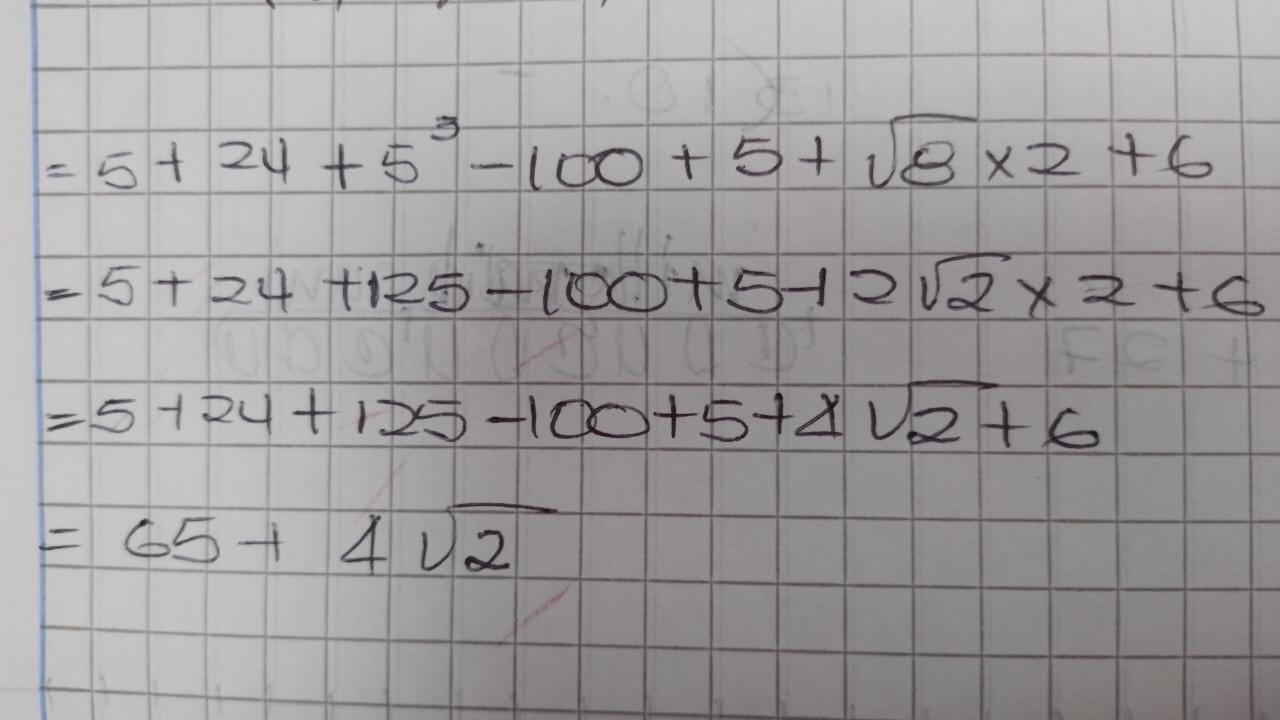 = 5 + 24 + 5³ - 100 + 5 + √8 × 2 + 6
= 5 + 24 + 125 - 100 + 5 + 2√2 × 2 + 6
= 5 + 24 + 125 - 100 + 5 + 4√2 + 6
= 65 + 4√2